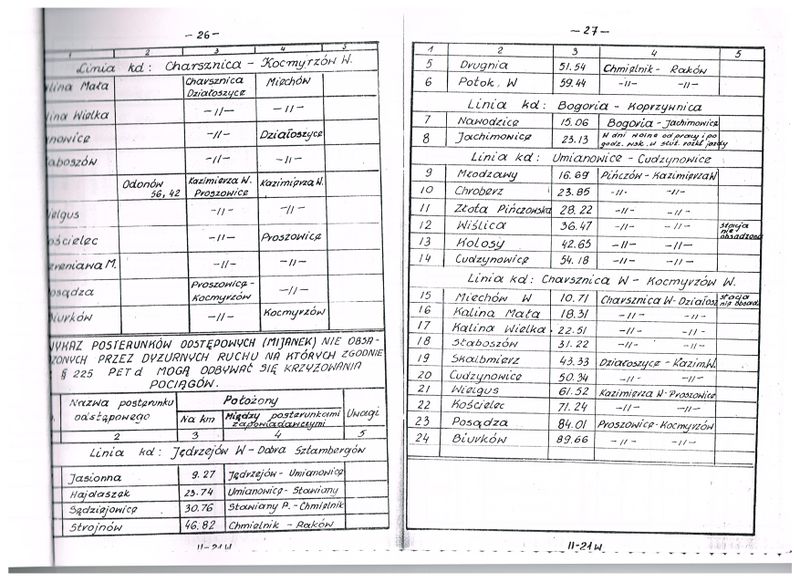 - 26 -
1 2 3 4 5
Linia kd: Charsznica - Kocmyrzów W.
alina Mała Charsznica Działoszyce Miechów
lina Wielka -//- -//-
nowice -//- Działoszyce
aboszów -//- -//-
Odonów 56,42 Kazimierza W. Proszowice Kazimierza W.
ielgus -//- -//-
ościelec -//- Proszowice
zreniawa M. -//- -//-
osądza Proszowice - Kocmyrzów -//-
Biurków -//- Kocmyrzów
WYKAZ POSTERUNKÓW ODSTĘPOWYCH (MIJANEK) NIE OBSA-
ZONYCH PRZEZ DYŻURNYCH RUCHU NA KTÓRYCH ZGODNIE
§ 225 PETd MOGĄ ODBYWAĆ SIĘ KRZYŻOWANIA
POCIĄGÓW.
Nazwa posterunku odstępowego Położony Uwagi
Na km Między posterunkami zapowiadawczymi
2 3 4 5
Linia kd: Jędrzejów W - Dobra Sztambergów
Jasionna 9.27 Jędrzejów - Umianowice
Hajdaszek 23.74 Umianowice - Stawiany
Sędziejowice 30.76 Stawiany P. - Chmielnik
Strojnów 46.82 Chmielnik - Raków
11-21W
- 27 -
1 2 3 4 5
5 Drugnia 51.54 Chmielnik - Raków
6 Potok W 59.44 -//- -//-
Linia kd: Bogoria - Koprzywnica
7 Nawodzice 15.06 Bogoria - Jachimowice
8 Jachimowice 23.13 W dni wolne od pracy i po godz. wsk. w służ. rozkł. jazdy
Linia kd: Umianowice - Cudzynowice
9 Młodzawy 16.69 Pińczów - Kazimierza W
10 Chroberz 23.85 -//- -//-
11 Złota Pińczowska 28.22 -//- -//-
12 Wiślica 36.47 -//- -//- stacja nie obsadzona
13 Kolosy 42.65 -//- -//-
14 Cudzynowice 54.18 -//- -//-
Linia kd: Charsznica W - Kocmyrzów W.
15 Miechów W 10.71 Charsznica W - Działosz stacja nie obsadz
16 Kalina Mała 18.31 -//- -//-
17 Kalina Wielka 22.51 -//- -//-
18 Słaboszów 31.22 -//- -//-
19 Skalbmierz 43.33 Działoszyce - Kazim.W.
20 Cudzynowice 50.34 -//- -//-
21 Wielgus 61.52 Kazimierza W - Proszowice
22 Kościelec 71.24 -//- -//-
23 Posądza 84.01 Proszowice - Kocmyrzów
24 Biurków 89.66 -//- -//-
11-21W